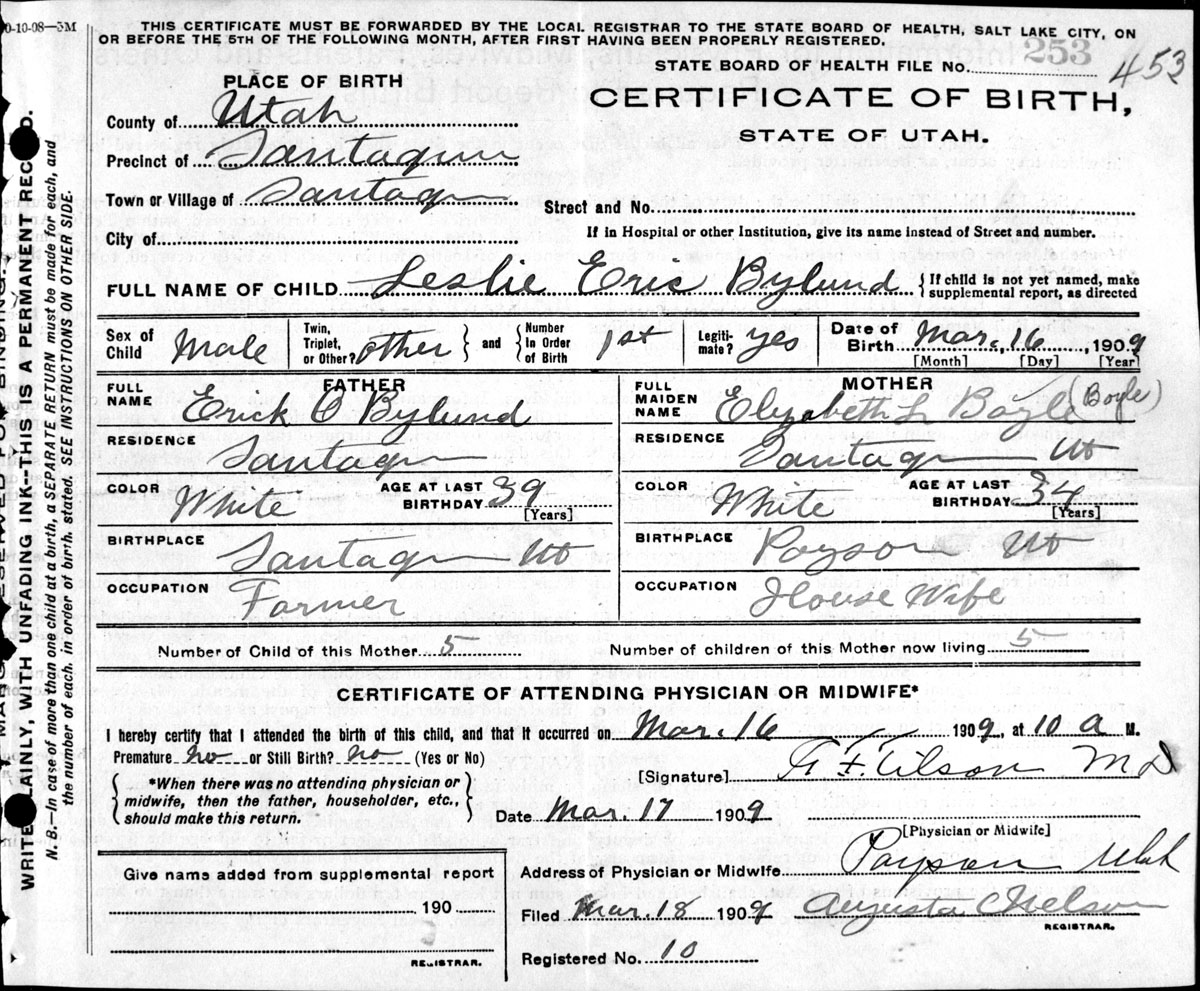 0-10-08—5M
THIS CERTIFICATE MUST BE FORWARDED BY THE LOCAL REGISTRAR TO THE STATE BOARD OF HEALTH, SALT LAKE CITY, ON
OR BEFORE THE 5TH OF THE FOLLOWING MONTH, AFTER FIRST HAVING BEEN PROPERLY REGISTERED.
253
STATE BOARD OF HEALTH FILE No. 453
PLACE OF BIRTH
CERTIFICATE OF BIRTH,
STATE OF UTAH.
County of Utah
Precinct of Santaquin
Town or Village of Santaqn
Street and No.
City of
If in Hospital or other Institution, give its name instead of Street and number.
FULL NAME OF CHILD Leslie Eric Bylund { If child is not yet named, make
supplemental report, as directed
Sex of Child Male
Twin, Triplet, or Other? other } and { Number In Order of Birth 1st
Legiti-mate? yes
Date of Birth Mar. 16, 1909
[Month] [Day] [Year]
FATHER
FULL NAME Erick C Bylund
RESIDENCE Santaqn
COLOR White AGE AT LAST BIRTHDAY 39 [Years]
BIRTHPLACE Santaqn Ut
OCCUPATION Farmer
MOTHER
FULL MAIDEN NAME Elyzabeth L Boyle (Boyle)
RESIDENCE Santaqn Ut
COLOR White AGE AT LAST BIRTHDAY 34 [Years]
BIRTHPLACE Payson Ut
OCCUPATION House Wife
Number of Child of this Mother 5 Number of children of this Mother now living 5
CERTIFICATE OF ATTENDING PHYSICIAN OR MIDWIFE*
I hereby certify that I attended the birth of this child, and that it occurred on Mar. 16 1909, at 10 a M.
Premature no or Still Birth? no (Yes or No)
{ *When there was no attending physician or
midwife, then the father, householder, etc.,
should make this return. }
[Signature] Tilson MD
Date Mar. 17 1909
[Physician or Midwife]
Address of Physician or Midwife Payson Utah
Filed Mar. 18 1909 Augusta Nelson
REGISTRAR.
Registered No. 10
Give name added from supplemental report
190
REGISTRAR.
WRITE PLAINLY, WITH UNFADING INK--THIS IS A PERMANENT RECORD.
N. B.—In case of more than one child at a birth, a SEPARATE RETURN must be made for each, and
the number of each, in order of birth, stated. SEE INSTRUCTIONS ON OTHER SIDE.